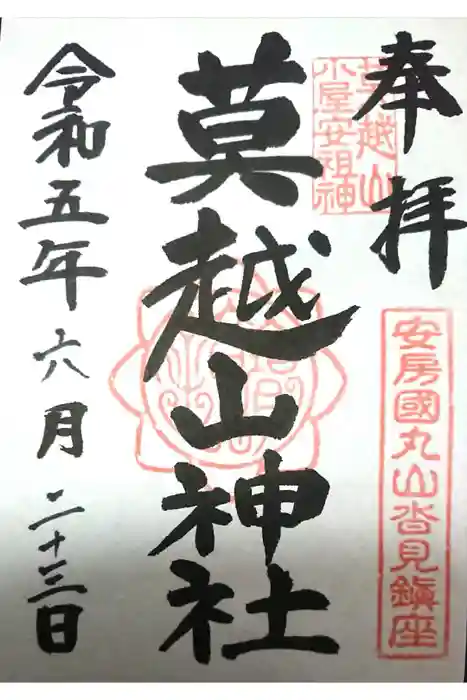 奉拝
莫越山
小屋安祖神
安房國丸山沓見鎮座
莫越山神社
令和五年六月二十三日